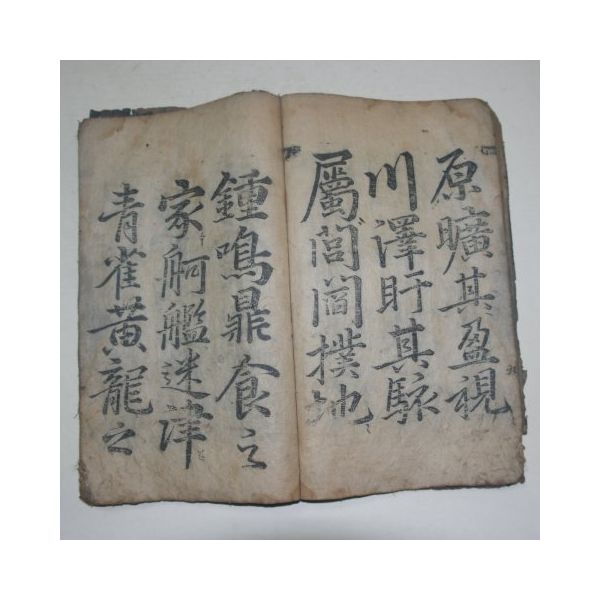 原曠其盈視
川澤盱其駭
屬閭閻撲地
鍾鳴鼎食之
家舸艦迷津
青雀黄龍之